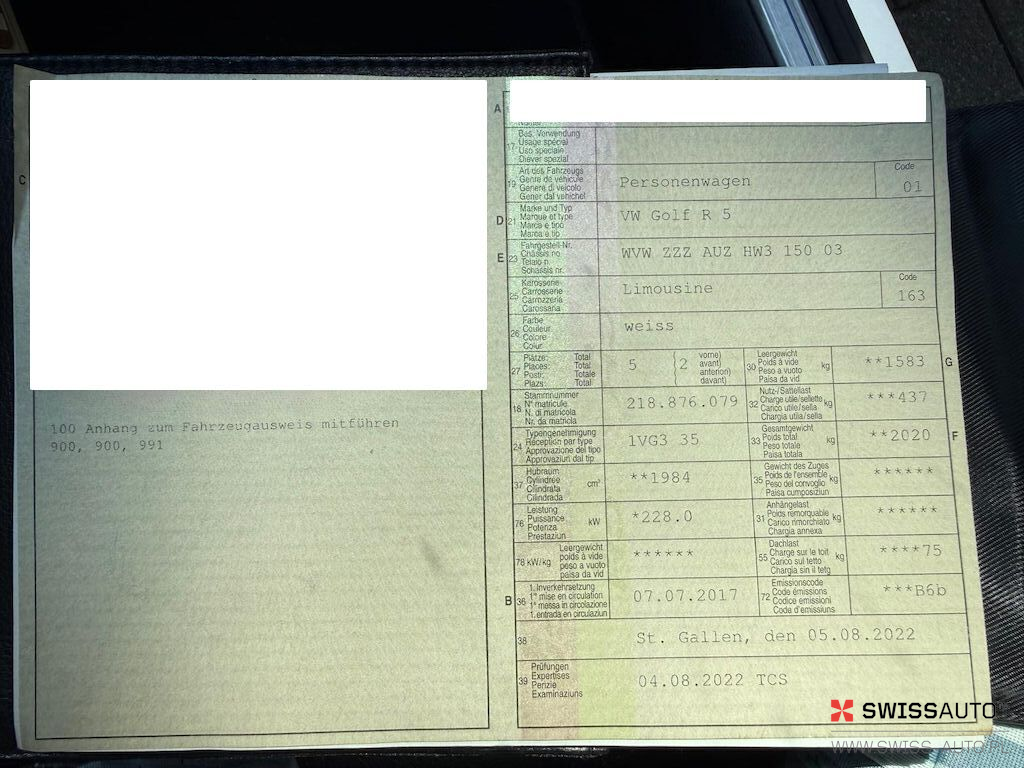 C
100 Anhang zum Fahrzeugausweis mitführen
900, 900, 991
A
Name
17 Bes. Verwendung
Usage spécial
Uso speciale
Diever spezial
19 Art des Fahrzeugs
Genre de véhicule
Genere di veicolo
Gener dal vehichel
Personenwagen
Code
01
D 21 Marke und Typ
Marque et type
Marca e tipo
Marca e tip
VW Golf R 5
E 23 Fahrgestell-Nr.
Châssis no
Telaio n.
Schassis nr.
WVW ZZZ AUZ HW3 150 03
25 Karosserie
Carrosserie
Carrozzeria
Carossaria
Limousine
Code
163
26 Farbe
Couleur
Colore
Colur
weiss
27 Plätze: Total
Places: Total
Posti: Totale
Plazs: Total
5 2 vorne)
avant)
anteriori)
davant)
30 Leergewicht
Poids à vide
Peso a vuoto
Paisa da vid
kg
**1583
G
18 Stammnummer
N° matricule
N. di matricola
Nr. da matricla
218.876.079
32 Nutz-/Sattellast
Charge utile/sellette
Carico utile/sella
Chargia utila/sella
kg
***437
24 Typengenehmigung
Réception par type
Approvazione del tipo
Approvaziun dal tip
1VG3 35
33 Gesamtgewicht
Poids total
Peso totale
Paisa totala
kg
**2020
F
37 Hubraum
Cylindrée
Cilindrata
Cilindrada
cm³
**1984
35 Gewicht des Zuges
Poids de l'ensemble
Peso del convoglio
Paisa cumposiziun
kg
******
76 Leistung
Puissance
Potenza
Prestaziun
kW
*228.0
31 Anhängelast
Poids remorquable
Carico rimorchiato
Chargia annexa
kg
******
78 kW/kg Leergewicht
poids à vide
peso a vuoto
paisa da vid
******
55 Dachlast
Charge sur le toit
Carico sul tetto
Chargia sin il tetg
kg
****75
B 36 1. Inverkehrsetzung
1re mise en circulation
1a messa in circolazione
1. entrada en circulaziun
07.07.2017
72 Emissionscode
Code émissions
Codice emissioni
Coda d'emissiuns
***B6b
38 St. Gallen, den 05.08.2022
39 Prüfungen
Expertises
Perizie
Examinaziuns
04.08.2022 TCS
SWISSAUTO
WWW.SWISS-AUTO